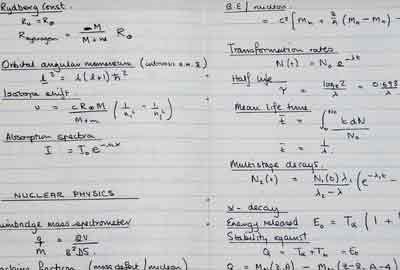 Rydberg Const.
R∞ = R∞
R_hydrogen = M / (M+m) R∞
Orbital angular momentum
l² = l(l+1) ħ²
Isotope shift
ν = cR∞M / (M+m) (1/n₁² - 1/n₂²)
Absorption spectra
I = I₀ e^-nαx
NUCLEAR PHYSICS
mass spectrometer
q/M = 2V / B²D
fraction (mass defect / nucleon)
B.E / nucleon
= c² [ Mₙ + Z/A (Mₙ - Mₙ) -
Transformation rates
N(t) = N₀ e^-λt
Half life
τ = logₑ2 / λ = 0.693
Mean life time
t̄ = ∫₀^N₀ t dN / N₀
t̄ = 1/λ
Multistage decays
N₂(t) = N₁(0) λ₁ / (λ₂ - λ) (e^-λ₁t -
α - decay
Energy released E₀ = Tα (1 +
Stability against
Q = Tα + Tb = E₀
Q = (Z, A) - (Z-2, A-4)